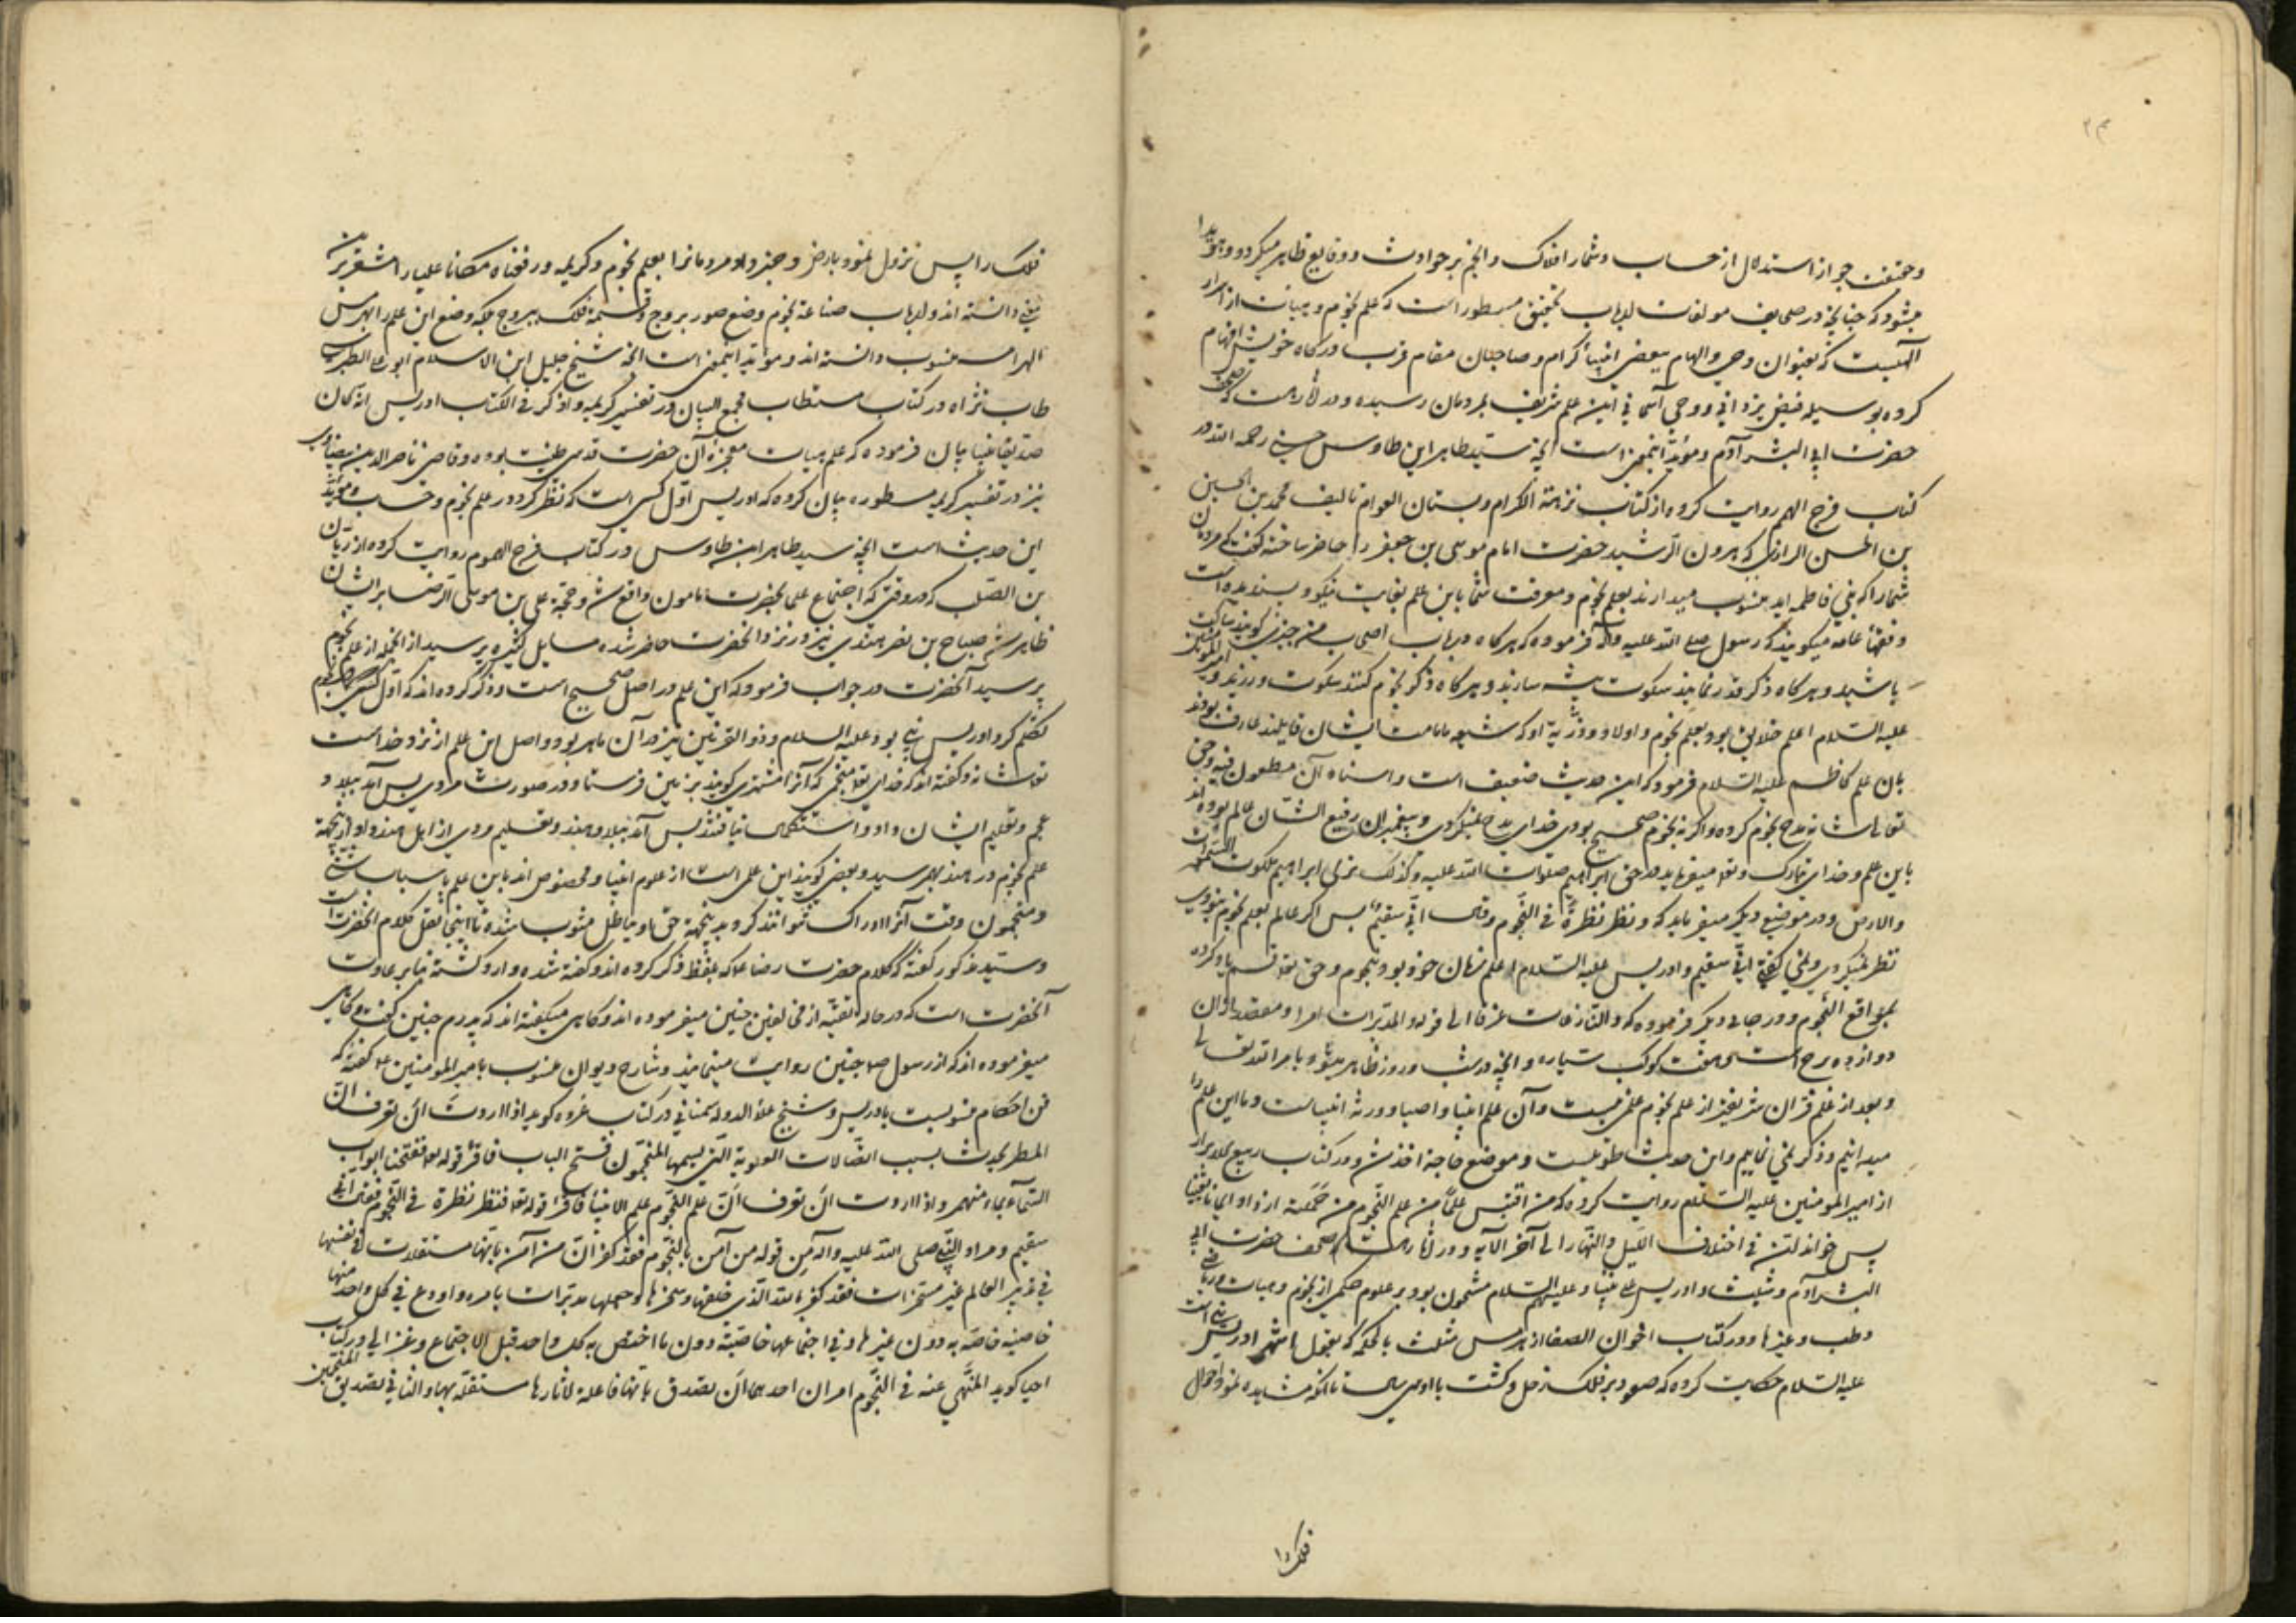 ۲۳
وحقیقت جواز استدلال از حساب و شمار افلاک و انجم بر حوادث و وقایع ظاهر میکردد و هویدا
میشود که چنانچه در صحایف مولفات ارباب تحقیق مسطور است که علم نجوم و هیات از اسرار
الهیست که بعنوان وحی و الهام ببعضی انبیأ کرام و صاحبان مقام قرب درکاه خویش افهام
کرده بوسیله فیض یزدانی و وحی آسمانی این علم شریف بمردمان رسیده و در
حضرت ابی البشر آدم و مؤید اینمعنی است آنچه سید طاهر ابن طاوس حسنی رحمه الله در
کتاب فرج المهموم روایت کرده از کتاب نزهة الکرام و بستان العوام تالیف محمد بن الحسین
بن الحسن الرازی که هرون الرشید حضرت امام موسی بن جعفر را حاضر ساخته کفت که مردمان
شما را که بنی فاطمه اید منسوب میدارند بعلم نجوم و معرفت شما باین علم بغایت نیکو و پسندیده است
و فقهأ عامه میکویند که رسول صلی الله علیه وآله فرموده که هرکاه در باب اصحاب من چیزی کویند ساکت
باشید و هرکاه ذکر قدر نمایند سکوت پیشه سازند و هرکاه ذکر نجوم کنند سکوت ورزند و امیر المومنین
علیه السلام اعلم خلایق بود بعلم نجوم و اولاد و ذریّه او که شیعه بامامت ایشان قایلند عارف بودند
بان علم کاظم علیه السلام فرمود که این حدیث ضعیف است و اسناد آن مطعون فیه و حق
تعالی شانه مدح نجوم کرده و اکر نه نجوم صحیح بودی خدای مدح نمیکردی و پیغمبران رفیع الشان عالم بوده اند
باین علم و خدای تبارک و تعالی میفرماید در حق ابراهیم صلوات الله علیه وکذلک نری ابراهیم ملکوت السموات
والارض و در موضعی دیکر میفرماید که و نظر نظرةً فی النّجوم فقال انّی سقیم پس اکر عالم بعلم نجوم نبودی
نظر نمیکردی و نمی کفتی انّی سقیم و ادریس علیه السلام اعلم زمان خود بود بنجوم و حق تعالی قسم یاد کرده
بمواقع النّجوم و در جای دیکر فرموده که والنّازعات غرقا الی قوله والمدبّرات امرا و مقصد ازان
دوازده برج است و هفت کوکب سیاره و آنچه در شب و روز ظاهر میشود بامر الله تعالی
و بعد از علم قران شریفتر از علم نجوم علمی نیست و آن علم انبیا و اوصیا و ورثه انبیاست و ما این علم را
میدانیم و ذکر نمی نماییم و این حدیث طویلست و موضع حاجة اخذ شد و در کتاب ربیع الابرار
از امیر المومنین علیه السّلام روایت کرده که من اقتبس علمًا من علم النّجوم من حَمَلة ازداد ایمانا و یقینا
پس خواند انّ فی اختلاف اللّیل والنّهار الی آخر الآیه و در آثار است که صحف حضرت ابی
البشر آدم و شیث و ادریس علی نبینا و علیهم السلام مشحون بود بر علوم حکمی از نجوم و هیات و ریاضی
و طب و غیرها و در کتاب اخوان الصفا از هرمس مثلث بالحکمه که بقول اشهر ادریس نبی است
علیه السلام حکایت کرده که صعود بر فلک زحل و کشت با او سی سال تا آنکه مشاهده نمود احوال
فلک را
فلک را پس نزول نمود بارض و خبر داد مردمانرا بعلم نجوم و کریمه ورفعناه مکانا علیا را مشعر برین
معنی دانسته اند و ارباب صناعة نجوم وضع صور بروج و قسمة فلک ببروج بلکه وضع این علم را بهرمس
الهرامسه منسوب دانسته اند و مؤید اینمعنی است آنچه شیخ جلیل امین الاسلام ابو علی الطبرسی
طاب ثراه در کتاب مستطاب مجمع البیان در تفسیر کریمه واذکر فی الکتاب ادریس انه کان
صدیقا نبیا بیان فرموده که علم هیات معجزه آن حضرت قدسی طینت بوده و قاضی ناصر الدین بیضاوی
نیز در تفسیر کریمه مسطوره بیان کرده که ادریس اوّل کسی است که نظر کرد در علم نجوم و حساب و مؤید
این حدیث است آنچه سید طاهر ابن طاوس در کتاب فرج الهموم روایت کرده از ریان
بن الصّلت که در وقتی که اجتماع علما بحضرت مامون واقع شد و حجّة علی بن موسی الرّضا بر ایشان
ظاهر شد صباح بن نصر هندی نیز در نزد آنحضرت حاضر شده مسایل کثیره پرسید از انجمله از علم نجوم
پرسید آنحضرت در جواب فرمود که این علم در اصل صحیح است و ذکر کرده اند که اوّل کسی که بنجوم
تکلّم کرد ادریس نبی بود علیه السلام و ذوالقرنین نیز در آن ماهر بود و اصل این علم از نزد خداست
تعالی شانه و کفته اند که خدای تعالی منجمی که آنرا مشتری کویند بزمین فرستاد در صورت مردی پس آمد ببلاد
عجم و تعلیم ایشان داد و استکمال نیافتند پس آمد ببلاد هند و تعلیم مردی از اهل هند داد ازینجهة
علم نجوم در هند بهم رسید و بعضی کویند این علمی است از علوم انبیا و مخصوص اند باین علم باسباب شتی
و منجمون دقت آنرا ادراک نتوانند کرد بدینجهة حق او بباطل مشوب شده تا اینجا نقل کلام آنحضرتست
و سید مذکور کفته که کلام حضرت رضا ع که بلفظ ذکر کرده اند و کفته شده وارد کشته بنابر عادت
آنحضرت است که در حاله تقیّه از مخالفین چنین میفرموده اند و کاهی میکفته اند که پدرم چنین کفت و کاهی
میفرموده اند که از رسول ص چنین روایت مینمایند و شارح دیوان منسوب بامیر المومنین ع کفته که
فن احکام منسوبست بادریس و شیخ علاء الدوله سمنانی در کتاب عُروه کوید اذا اردت ان تعرف انّ
المطر یحدث بسبب اتصالات العلویة التی یسمیها المنجّمون فتح الباب فاقرأ قوله تعالی ففتحنا ابواب
السّماء بماء منهمر واذا اردت ان تعرف انّ علم النّجوم علم الانبیأ فاقرأ قوله تعالی فنظر نظرة فی النّجوم فقال انی
سقیم و مراد النّبی صلی الله علیه وآله مِن قوله من آمن بالنّجوم فقد کفر انّ من آمن بانها مستقلات فی نفسها
فی تدبیر العالم غیر مسخرات فقد کفر بالله الّذی خلقها وسخرها وجعلها مدبّرات بامره واودع فی کل واحد منها
خاصیه خاصّه به دون غیرها و فی اجتماعها خاصّیّة دون ما اختص به کل واحد قبل الاجتماع و غزالی در کتاب
احیا کوید المنّهی عنه فی النّجوم امران احدهما ان تصدق بانها فاعلة لآثارها مستقلّه بها والثانی تصدیق المنجّمین